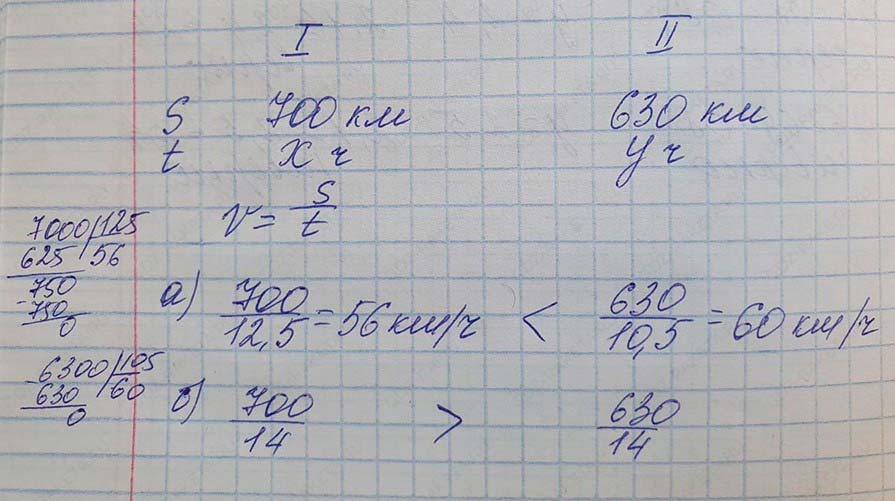 I II
S 700 км 630 км
t х ч у ч
v = S/t
7000 | 125
625 | 56
-750
750
0
а) 700/12,5 = 56 км/ч < 630/10,5 = 60 км/ч
-6300 | 105
630 | 60
0
б) 700/14 > 630/14